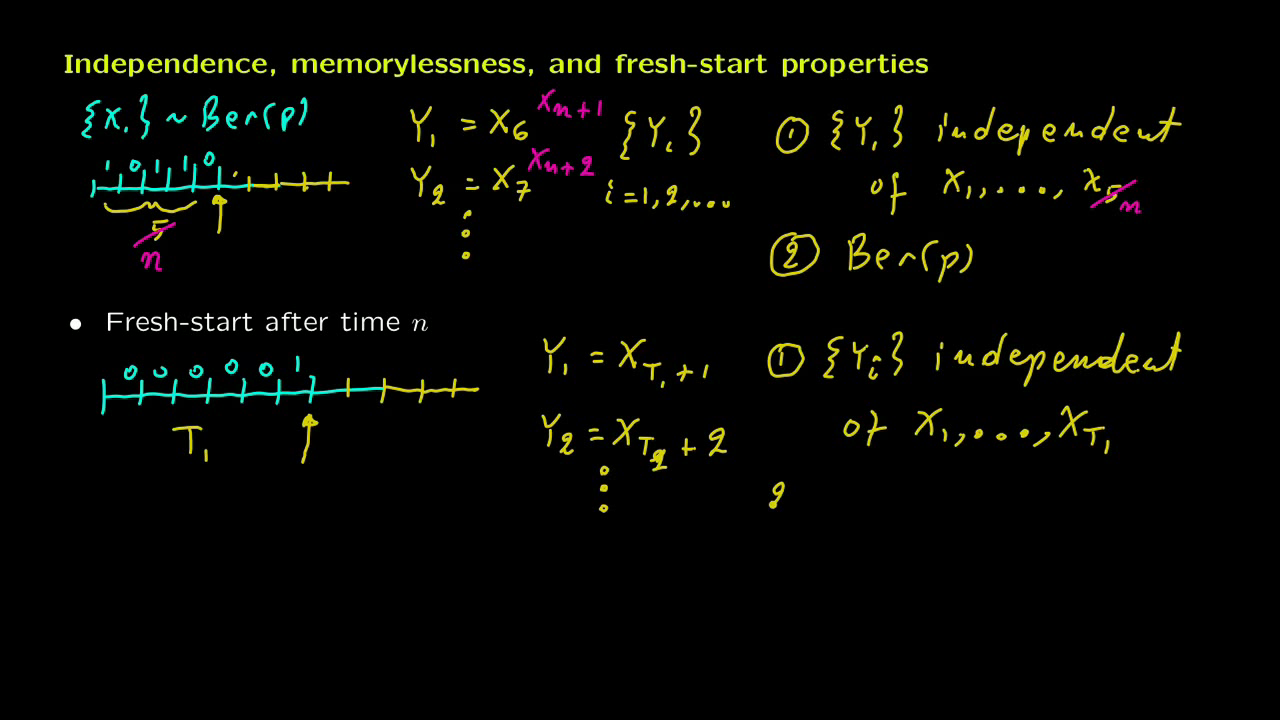 Independence, memorylessness, and fresh-start properties
{X_i} ~ Ber(p)
1 0 1 1 0
5
n
Y_1 = X_6 X_{n+1}
Y_2 = X_7 X_{n+2}
{Y_i}
i = 1, 2, ...
① {Y_i} independent
of X_1, ..., X_5 n
② Ber(p)
• Fresh-start after time n
0 0 0 0 0 1
T_1
Y_1 = X_{T_1 + 1}
Y_2 = X_{T_2 + 2}
① {Y_i} independent
of X_1, ..., X_{T_1}
2